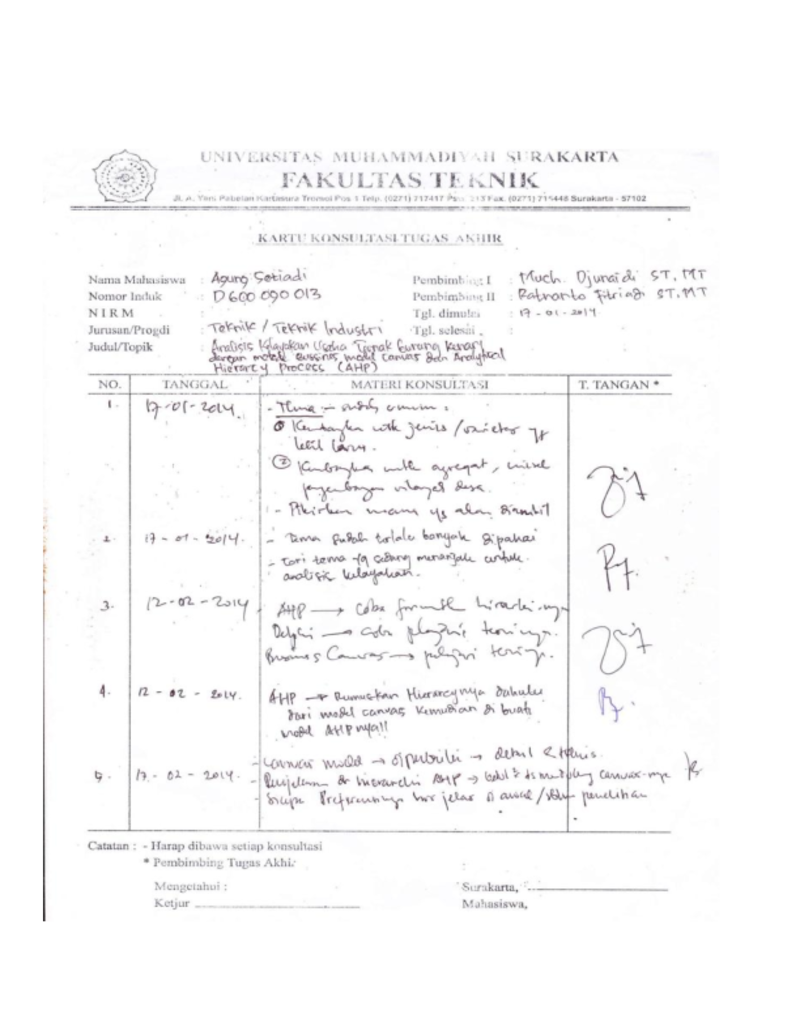 UNIVERSITAS MUHAMMADIYAH SURAKARTA
FAKULTAS TEKNIK
Jl. A. Yani Pabelan Kartasura Tromol Pos 1 Telp. (0271) 717417 Psw. 213 Fax. (0271) 715448 Surakarta - 57102
KARTU KONSULTASI TUGAS AKHIR
Nama Mahasiswa : Agung Setiadi
Pembimbing I : Much. Djunaidi ST, MT
Nomor Induk : D 600 090 013
Pembimbing II : Ratnanto Fitriadi ST, MT
N I R M :
Tgl. dimulai : 17 - 01 - 2014
Jurusan/Progdi : Teknik / Teknik Industri
Tgl. selesai :
Judul/Topik : Analisis Kelayakan Usaha Ternak Burung Kenary
dengan model Bussines model canvas dan Analytical
Hierarcy Process (AHP)
NO. TANGGAL MATERI KONSULTASI T. TANGAN *
1. 17-01-2014. - Tema - sudah umum :
① Kembangkan utk jenis / varietas yg
② Kembangkan utk agregat,
pengembangan wilayah desa.
- Pikirkan mana yg akan diambil
2. 17 - 01 - 2014. - Tema sudah terlalu banyak dipakai
- Cari tema yg sedang menanjak untuk
analisis kelayakan.
3. 12-02-2014 AHP → coba hirarki-nya
Delphi → coba teorinya.
Business Canvas → pelajari teorinya.
4. 12 - 02 - 2014. AHP → Rumuskan Hierarcynya dahulu
dari model canvas kemudian di buat
model AHP nya!!
- Canvas model → diperbaiki → detail & teknis.
5. 17 - 02 - 2014. - Penjelasan dr hierarchi AHP → canvas-nya
- jelas di awal / penelitian
Catatan : - Harap dibawa setiap konsultasi
* Pembimbing Tugas Akhir
Mengetahui :
Surakarta,
Ketjur
Mahasiswa,